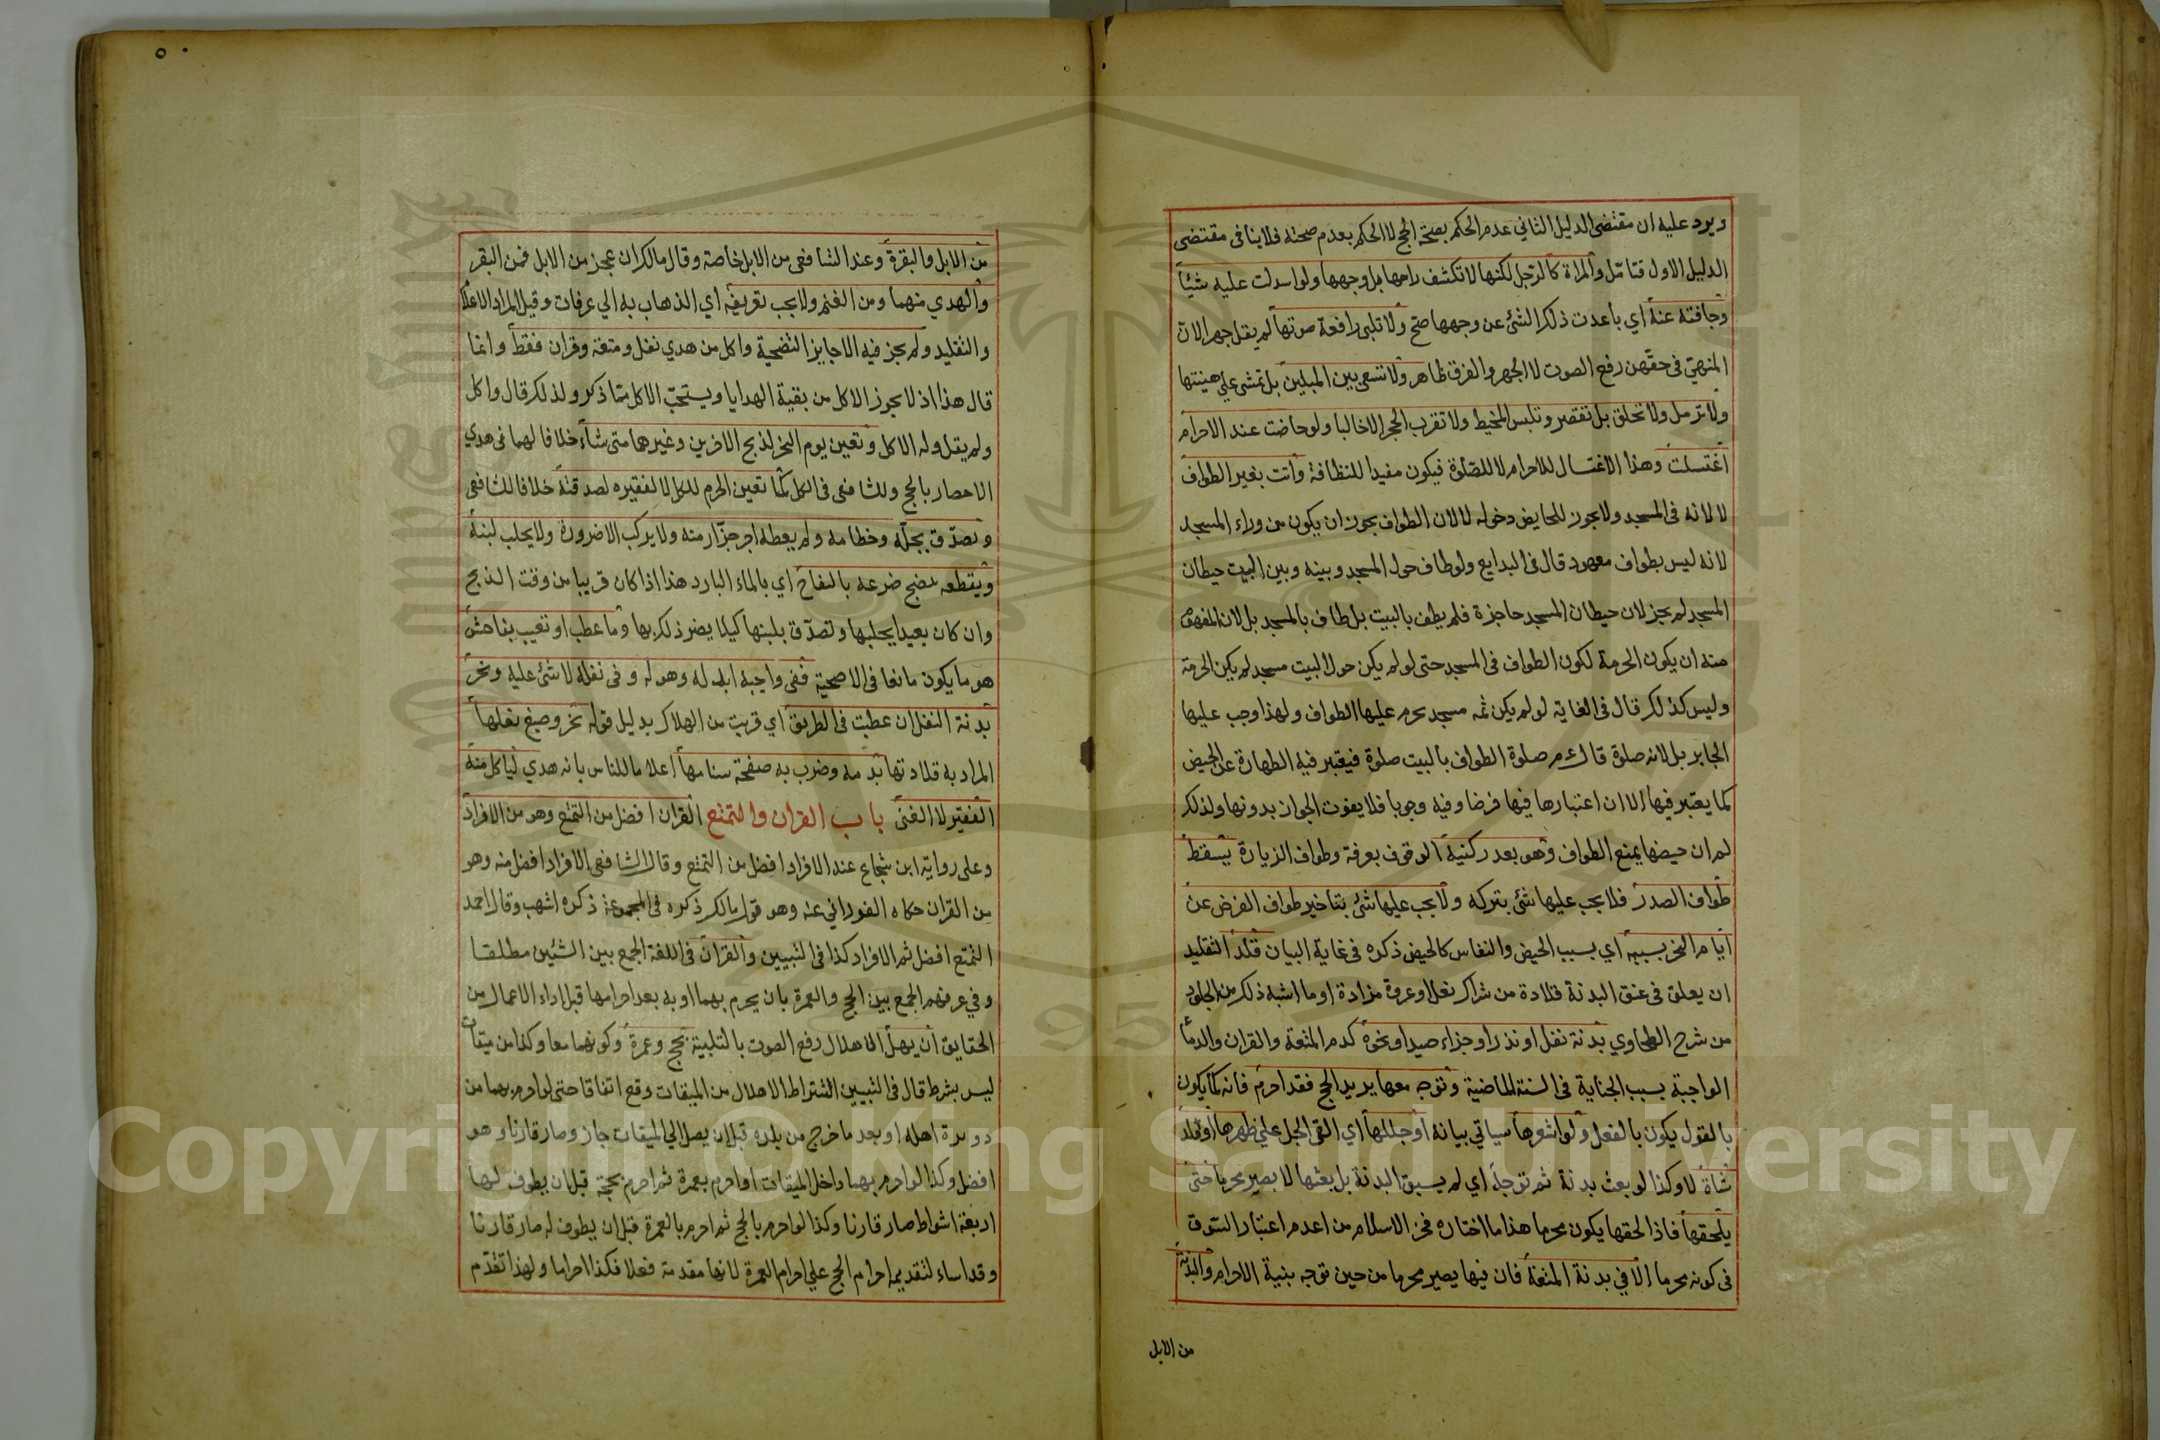 ويرد عليه ان مقتضى الدليل الثاني عدم الحكم بصحة الحج لا الحكم بعدم صحته فلا ينافى مقتضى
الدليل الاول فتامل والمراة كالرجل لكنها لا تكشف راسها بل وجهها ولو اسدلت عليه شيئا
وجافته عنه اي باعدت ذلك الشئ عن وجهها صح ولا تلبى رافعة صوتها لم يقل جهر الان
المنهي في حقهن رفع الصوت لا الجهر والفرق ظاهر ولا تسعى بين الميلين بل تمشى على هينتها
ولا ترمل ولا تحلق بل تقصر وتلبس المخيط ولا تقرب الحجر الا خاليا ولو حاضت عند الاحرام
اغتسلت وهذا الاغتسال للاحرام لا للصلوة فيكون مفيدا للنظافة واتت بغير الطواف
لا لانه فى المسجد ولا يجوز للحايض دخوله لا لان الطواف يجوز ان يكون من وراء المسجد
لانه ليس بطواف معهود قال فى البدايع ولو طاف حول المسجد وبينه وبين البيت حيطان
المسجد لم يجز لان حيطان المسجد حاجزة فلم يطف بالبيت بل طاف بالمسجد بل لان المفهوم
منه ان يكون الحرمة لكون الطواف فى المسجد حتى لو لم يكن حول البيت مسجد لم يكن الحرمة
وليس كذلك قال فى الغاية لو لم يكن ثمه مسجد يحرم عليها الطواف ولهذا وجب عليها
الجابر بل لانه صلوة قال م صلوة الطواف بالبيت صلوة فيعتبر فيه الطهارة عن الحيض
كما يعتبر فيها الا ان اعتبارها فيها فرضا وفيه وجوبا فلا يفوت الجواز بدونها ولذلك
لم ان حيضها يمنع الطواف وهو بعد ركنية الوقوف بعرفة وطواف الزيارة يسقط
طواف الصدر فلا يجب عليها شئ بتركه ولا يجب عليها شئ بتاخير طواف الفرض عن
ايام النحر بسببه اي بسبب الحيض والنفاس كالحيض ذكره فى غاية البيان قلد التقليد
ان يعلق فى عنق البدنة قلادة من شراك نعل او عروة مزادة او ما اشبه ذلك من الجلود
من شرح الطحاوي بدنة نفل او نذر او جزاء صيد او نحوه كدم المتعة والقران والدما
الواجبة بسبب الجناية فى السنة الماضية وتوجه معها يريد الحج فقد احرم فانه كما يكون
بالقول يكون بالفعل ولو اشعرها سياتي بيانه او جللها اي القى الجل على ظهرها او قلد
شاة لا وكذا لو بعث بدنة ثم توجه اي لم يسبق البدنة بل بعثها لا يصير محرما حتى
يلحقها فاذا لحقها يكون محرما هذا ما اختاره فخر الاسلام من اعدم اعتبار السوق
فى كونه محرما الا في بدنة المتعة فان فيها يصير محرما من حين توجه بنية الاحرام والبدنة
من الابل
من الابل والبقرة وعند الشافعى من الابل خاصة وقال مالك ان عجز من الابل فمن البقر
والهدي منهما ومن الغنم ولا يجب تعريفه اي الذهاب به الى عرفات وقيل المراد الاعلا
والتقليد ولم يجز فيه الا جايز التضحية واكل من هدي نفل ومتعة وقران فقط وانما
قال هذا اذ لا يجوز الاكل من بقية الهدايا ويستحب الاكل مما ذكر ولذلك قال واكل
ولم يقل وله الاكل وتعين يوم النحر لذبح الاخرين وغيرها متى شاء خلافا لهما فى هدي
الاحصار بالحج وللشافعى فى الكل كما تعين الحرم للكل لا لفقيره لصدقته خلافا للشافعى
وتصدق بجله وخطامه ولم يعطه اجر جزار منه ولا يركب الا ضرورة ولا يحلب لبنه
ويقطعه بنضح ضرعه بالنقاخ اي بالماء البارد هذا اذا كان قريبا من وقت الذبح
وان كان بعيدا يحلبها وتصدق بلبنها كيلا يضر ذلك بها وما عطب او تعيب بفاحش
هو ما يكون مانعا فى الاضحية ففى واجبه ابدله وهو له وفى نفله لا شئ عليه ونحر
بدنة النفل ان عطبت فى الطريق اي قربت من الهلاك بدليل قوله نحر وصبغ نعلها
المراد به قلادتها بدمه وضرب به صفحة سنامها اعلاما للناس بانه هدي لياكل منه
الفقير لا الغنى باب القران والتمتع القران افضل من التمتع وهو من الافراد
وعلى رواية ابن شجاع عند الافراد افضل من التمتع وقال الشافعى الافراد افضل منه وهو
من القران حكاه الفوراني عنه وهو قول مالك ذكره فى المجموعة ذكره اشهب وقال احمد
التمتع افضل ثم الافراد كذا فى التبيين والقران فى اللغة الجمع بين الشيئين مطلقا
وفي عرفهم الجمع بين الحج والعمرة بان يحرم بهما او به بعد احرامها قبل اداء الاعمال من
الحقايق ان يهل الاهلال رفع الصوت بالتلبية بحج وعمرة وكونهما معا وكذا من ميقات
ليس بشرط قال فى التبيين اشتراط الاهلال من الميقات وقع اتفاقا حتى لو احرم بهما من
دويرة اهله او بعد ما خرج من بلده قبل ان يصل الى الميقات جاز وصار قارنا وهو
افضل وكذا لو احرم بهما داخل الميقات او احرم بعمرة ثم احرم بحجة قبل ان يطوف لها
اربعة اشواط صار قارنا وكذا لو احرم بالحج ثم احرم بالعمرة قبل ان يطوف له صار قارنا
وقد اساء لتقديم احرام الحج على احرام العمرة لانها مقدمة فعلا فكذا احراما ولهذا تقدم
Copyright © King Saud University